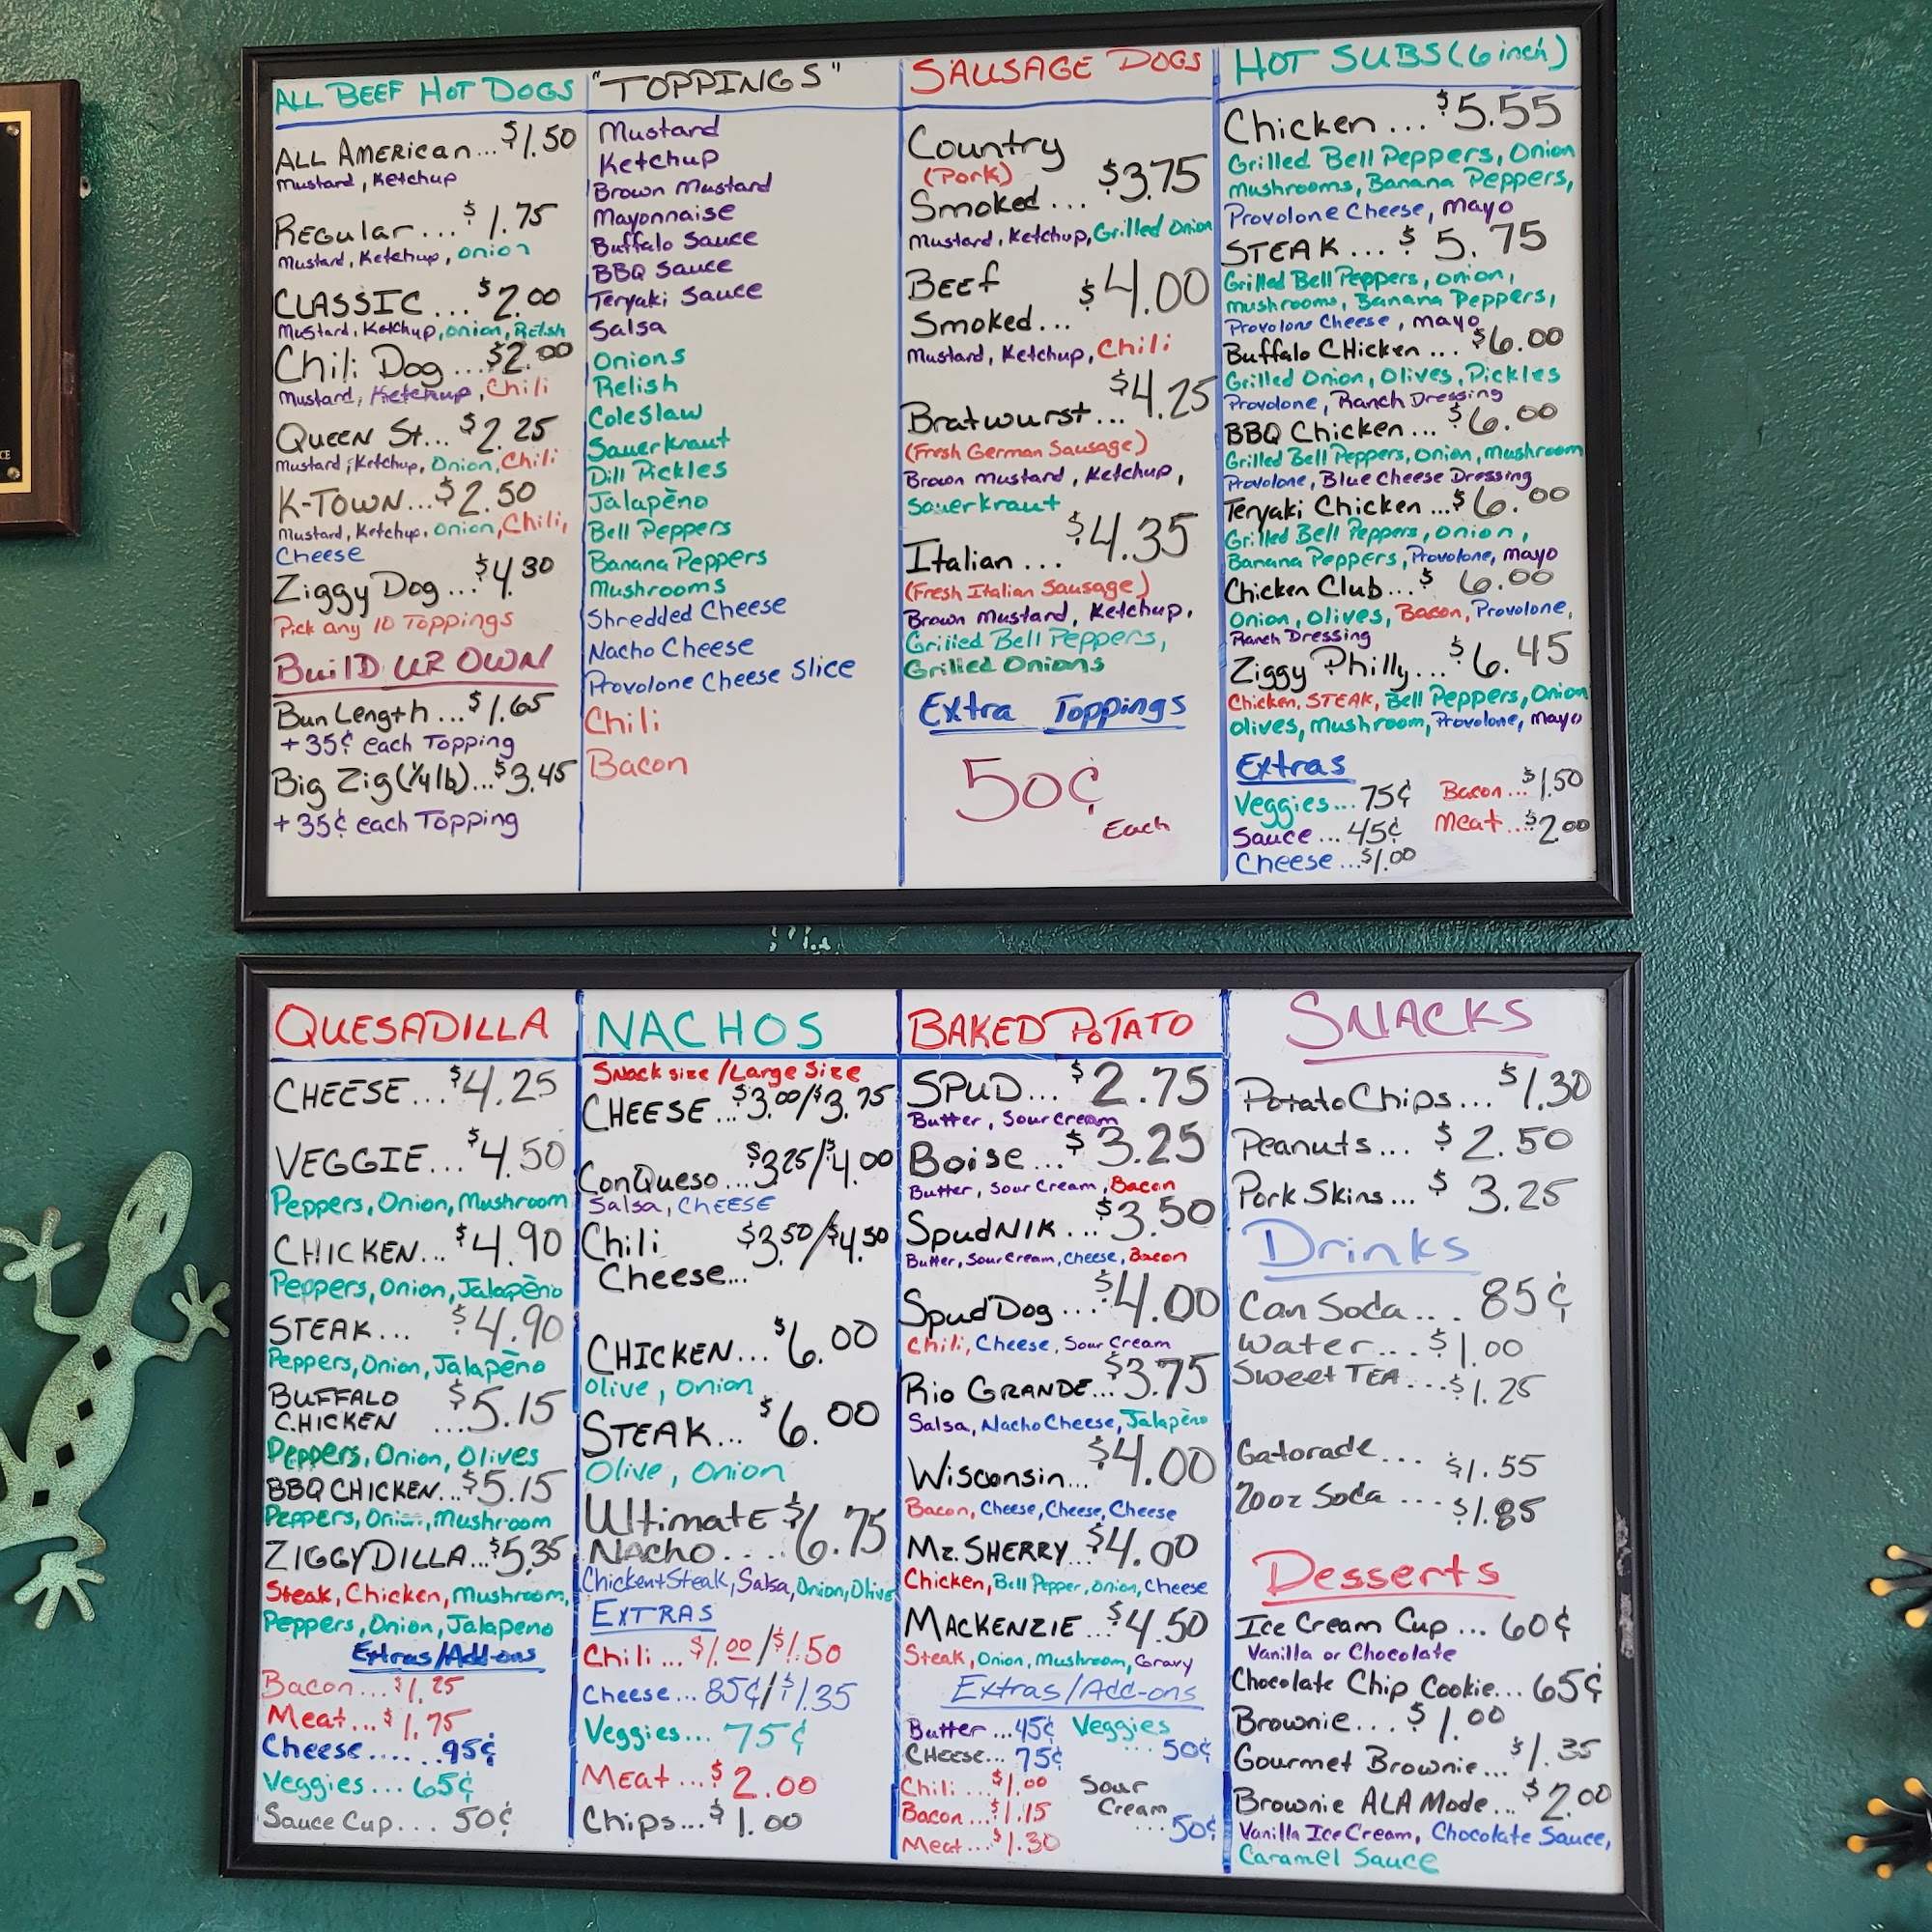 ALL BEEF HOT DOGS
ALL AMERICAN...$1.50
Mustard, Ketchup
REGular...$1.75
Mustard, Ketchup, onion
CLASSIC...$2.00
Mustard, Ketchup, onion, Relish
Chili Dog...$2.00
Mustard, Ketchup, Chili
QUEEN St...$2.25
Mustard, Ketchup, Onion, Chili
K-TOWN...$2.50
Mustard, Ketchup, onion, Chili,
Cheese
Ziggy Dog...$4.30
Pick any 10 Toppings
BuilD UR OWN
Bun Length...$1.65
+35¢ each Topping
Big Zig (1/4 lb)...$3.45
+35¢ each Topping
"TOPPINGS"
Mustard
Ketchup
Brown Mustard
Mayonnaise
Buffalo Sauce
BBQ Sauce
Teryaki Sauce
Salsa
Onions
Relish
Coleslaw
Sauerkraut
Dill Pickles
Jalapèno
Bell Peppers
Banana Peppers
Mushrooms
Shredded Cheese
Nacho Cheese
Provolone Cheese Slice
Chili
Bacon
SAUSAGE DOGS
Country
(Pork) $3.75
Smoked...
Mustard, Ketchup, Grilled Onion
BEEF $4.00
Smoked...
Mustard, Ketchup, Chili
Bratwurst...$4.25
(Fresh German Sausage)
Brown Mustard, Ketchup,
Sauerkraut
Italian...$4.35
(Fresh Italian Sausage)
Brown Mustard, Ketchup,
Grilled Bell Peppers,
Grilled Onions
Extra Toppings
50¢
Each
HOT SUBS (6 inch)
Chicken...$5.55
Grilled Bell Peppers, Onion
Mushrooms, Banana Peppers,
Provolone Cheese, Mayo
STEAK...$5.75
Grilled Bell Peppers, onion,
mushrooms, Banana Peppers,
Provolone Cheese, mayo
Buffalo CHicken...$6.00
Grilled Onion, Olives, Pickles
Provolone, Ranch Dressing
BBQ Chicken...$6.00
Grilled Bell Peppers, onion, mushroom
Provolone, Blue Cheese Dressing
Teryaki Chicken...$6.00
Grilled Bell Peppers, onion,
Banana Peppers, Provolone, mayo
Chicken Club...$6.00
Onion, Olives, Bacon, Provolone,
Ranch Dressing
Ziggy Philly...$6.45
Chicken, STEAK, Bell Peppers, Onion
Olives, Mushroom, Provolone, Mayo
Extras
Veggies...75¢ Bacon...$1.50
Sauce...45¢ Meat...$2.00
Cheese...$1.00
QUESADILLA
CHEESE...$4.25
VEGGIE...$4.50
Peppers, Onion, Mushroom
CHICKEN...$4.90
Peppers, Onion, Jalapèno
STEAK...$4.90
Peppers, Onion, Jalapèno
BUFFALO
CHICKEN ...$5.15
Peppers, Onion, Olives
BBQ CHICKEN...$5.15
Peppers, Onion, Mushroom
ZIGGYDILLA...$5.35
Steak, Chicken, Mushroom,
Peppers, Onion, Jalapeno
Extras/Add-ons
Bacon...$1.25
Meat...$1.75
Cheese......95¢
Veggies...65¢
Sauce Cup...50¢
NACHOS
Snack size/Large Size
CHEESE...$3.00/$3.75
ConQueso...$3.25/$4.00
Salsa, CHEESE
Chili $3.50/$4.50
Cheese...
CHICKEN...$6.00
olive, onion
STEAK...$6.00
Olive, Onion
UltimatE $6.75
NAcho....
Chicken+Steak, Salsa, Onion, Olive
EXTRAS
Chili...$1.00/$1.50
Cheese...85¢/$1.35
Veggies...75¢
MEAt...$2.00
Chips...$1.00
BAKED POTATO
SPUD...$2.75
Butter, Sour cream
Boise...$3.25
Butter, Sour Cream, Bacon
SpudNIK...$3.50
Butter, Sour Cream, Cheese, Bacon
Spud Dog...$4.00
Chili, Cheese, Sour Cream
Rio GRANDE...$3.75
Salsa, Nacho Cheese, Jalapèno
Wisconsin...$4.00
Bacon, Cheese, Cheese, Cheese
Mz. SHERRY...$4.00
Chicken, Bell Pepper, onion, Cheese
MACKENZIE...$4.50
Steak, Onion, Mushroom, Gravy
Extras/Add-ons
Butter...45¢ Veggies
CHEESE...75¢ ...50¢
Chili...$1.00 Sour
Bacon...$1.15 Cream
Meat...$1.30 ...50¢
SNACKS
Potato Chips...$1.30
Peanuts...$2.50
Pork Skins...$3.25
Drinks
Can Soda...85¢
Water...$1.00
Sweet TEA...$1.25
Gatorade...$1.55
20oz Soda...$1.85
Desserts
Ice Cream Cup...60¢
Vanilla or Chocolate
Chocolate Chip Cookie...65¢
Brownie...$1.00
Gourmet Brownie...$1.35
Brownie ALA Mode...$2.00
Vanilla Ice Cream, Chocolate Sauce,
Caramel Sauce